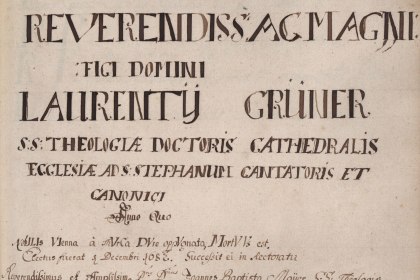 REVERENDISS. AC MAGNI
FICI DOMINI
LAURENTIJ GRÜNER
S.S. THEOLOGIÆ DOCTORIS CATHEDRALIS
ECCLESIÆ AD S. STEPHANUM CANTATORIS ET
CANONICI
Anno Quo
Vienna à est,
Electus fuerat 1 Decembri Successit ei in Rectoratu
Reverendissimus et Joannes Baptista S.S. Theologiæ